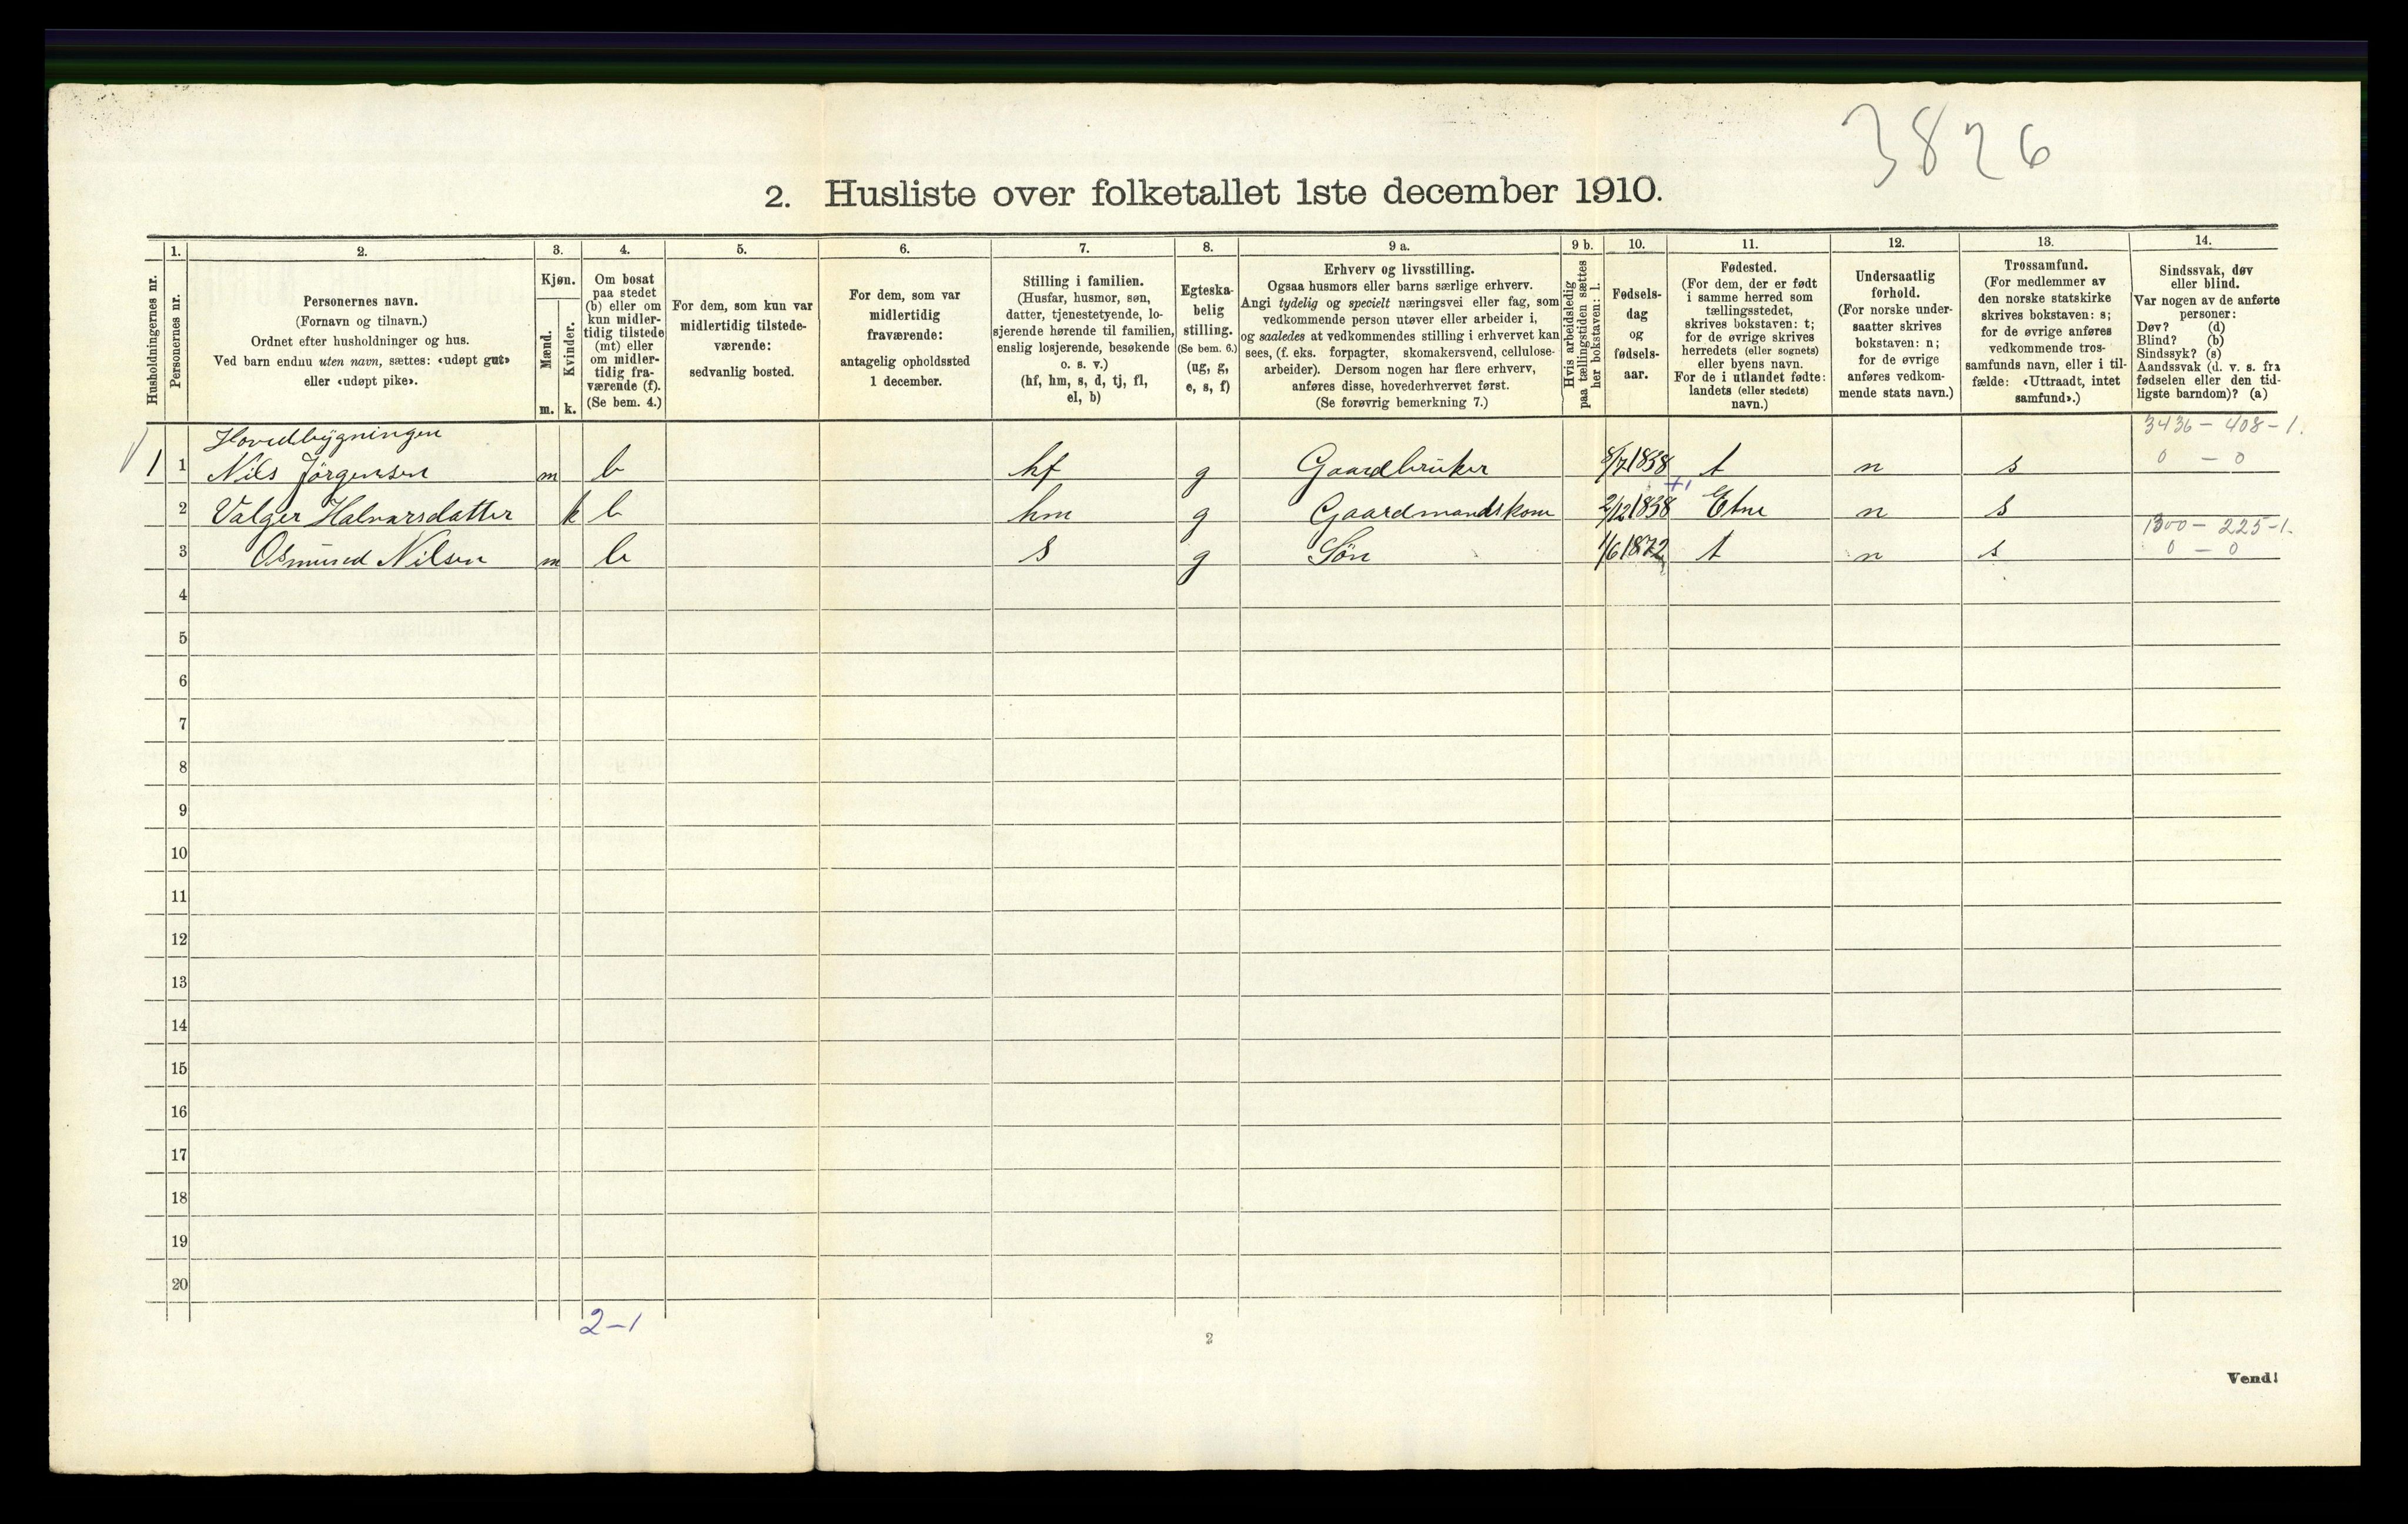 3826
2. Husliste over folketallet 1ste december 1910.
Husholdningernes nr.
1.
Personernes nr.
2.
Personernes navn.
(Fornavn og tilnavn.)
Ordnet efter husholdninger og hus.
Ved barn endnu uten navn, sættes: «udøpt gut»
eller «udøpt pike».
3.
Kjøn.
Mænd.
Kvinder.
m. k.
4.
Om bosat
paa stedet
(b) eller om
kun midler-
tidig tilstede
(mt) eller
om midler-
tidig fra-
værende (f).
(Se bem. 4.)
5.
For dem, som kun var
midlertidig tilstede-
værende:
sedvanlig bosted.
6.
For dem, som var
midlertidig
fraværende:
antagelig opholdssted
1 december.
7.
Stilling i familien.
(Husfar, husmor, søn,
datter, tjenestetyende, lo-
sjerende hørende til familien,
enslig losjerende, besøkende
o. s. v.)
(hf, hm, s, d, tj, fl,
el, b)
8.
Egteska-
belig
stilling.
(Se bem. 6.)
(ug, g,
e, s, f)
9 a.
Erhverv og livsstilling.
Ogsaa husmors eller barns særlige erhverv.
Angi tydelig og specielt næringsvei eller fag, som
vedkommende person utøver eller arbeider i,
og saaledes at vedkommendes stilling i erhvervet kan
sees, (f. eks. forpagter, skomakersvend, cellulose-
arbeider). Dersom nogen har flere erhverv,
anføres disse, hovederhvervet først.
(Se forøvrig bemerkning 7.)
9 b.
Hvis arbeidsledig
paa tællingstiden sættes
her bokstaven: l.
10.
Fødsels-
dag
og
fødsels-
aar.
11.
Fødested.
(For dem, der er født
i samme herred som
tællingsstedet,
skrives bokstaven: t;
for de øvrige skrives
herredets (eller sognets)
eller byens navn.
For de i utlandet fødte:
landets (eller stedets)
navn.)
12.
Undersaatlig
forhold.
(For norske under-
saatter skrives
bokstaven: n;
for de øvrige
anføres vedkom-
mende stats navn.)
13.
Trossamfund.
(For medlemmer av
den norske statskirke
skrives bokstaven: s;
for de øvrige anføres
vedkommende tros-
samfunds navn, eller i til-
fælde: «Uttraadt, intet
samfund».)
14.
Sindssvak, døv
eller blind.
Var nogen av de anførte
personer:
Døv? (d)
Blind? (b)
Sindssyk? (s)
Aandssvak (d. v. s. fra
fødselen eller den tid-
ligste barndom)? (a)
Hovedbygningen
3436 - 408 - 1.
0 - 0
1 1 Nils Jörgensen m b hf g Gaardbruker 8/7 1838 t n s
+1
2 Valger Halvarsdatter k b hm g Gaardmandskone 2/12 1838 Etne n s
1300 - 225-1.
0 - 0
3 Osmund Nilsen m b s g Sön 1/6 1872 t n s
4
5
6
7
8
9
10
11
12
13
14
15
16
17
18
19
20
2-1
2
Vend!